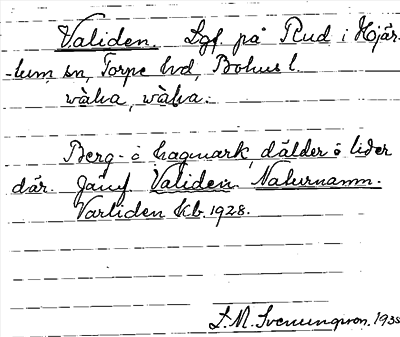 Validen. Lgf. på Rud i Hjär-
tum sn, Torpe hd, Bohus l.
vàlia, vàlia.
Berg- o hagmark, dälder o lider
där. Jämf Validen Naturnamn.
Varliden kb. 1928.
L. M. Svenungsson. 1935